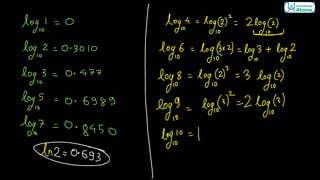 log₁₀ 1 = 0
log₁₀ 2 = 0.3010
log₁₀ 3 = 0.477
log₁₀ 5 = 0.6989
log₁₀ 7 = 0.8450
ln2 = 0.693
log₁₀ 4 = log₁₀(2)² = 2 log₁₀(2)
log₁₀ 6 = log₁₀(3×2) = log₁₀ 3 + log₁₀ 2
log₁₀ 8 = log₁₀(2)³ = 3 log₁₀(2)
log₁₀ 9 = log₁₀(3)² = 2 log₁₀(3)
log₁₀ 10 = 1